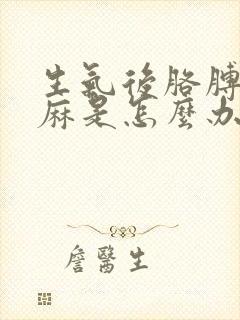 生氣後胳膊
麻是怎麼办
詹醫生